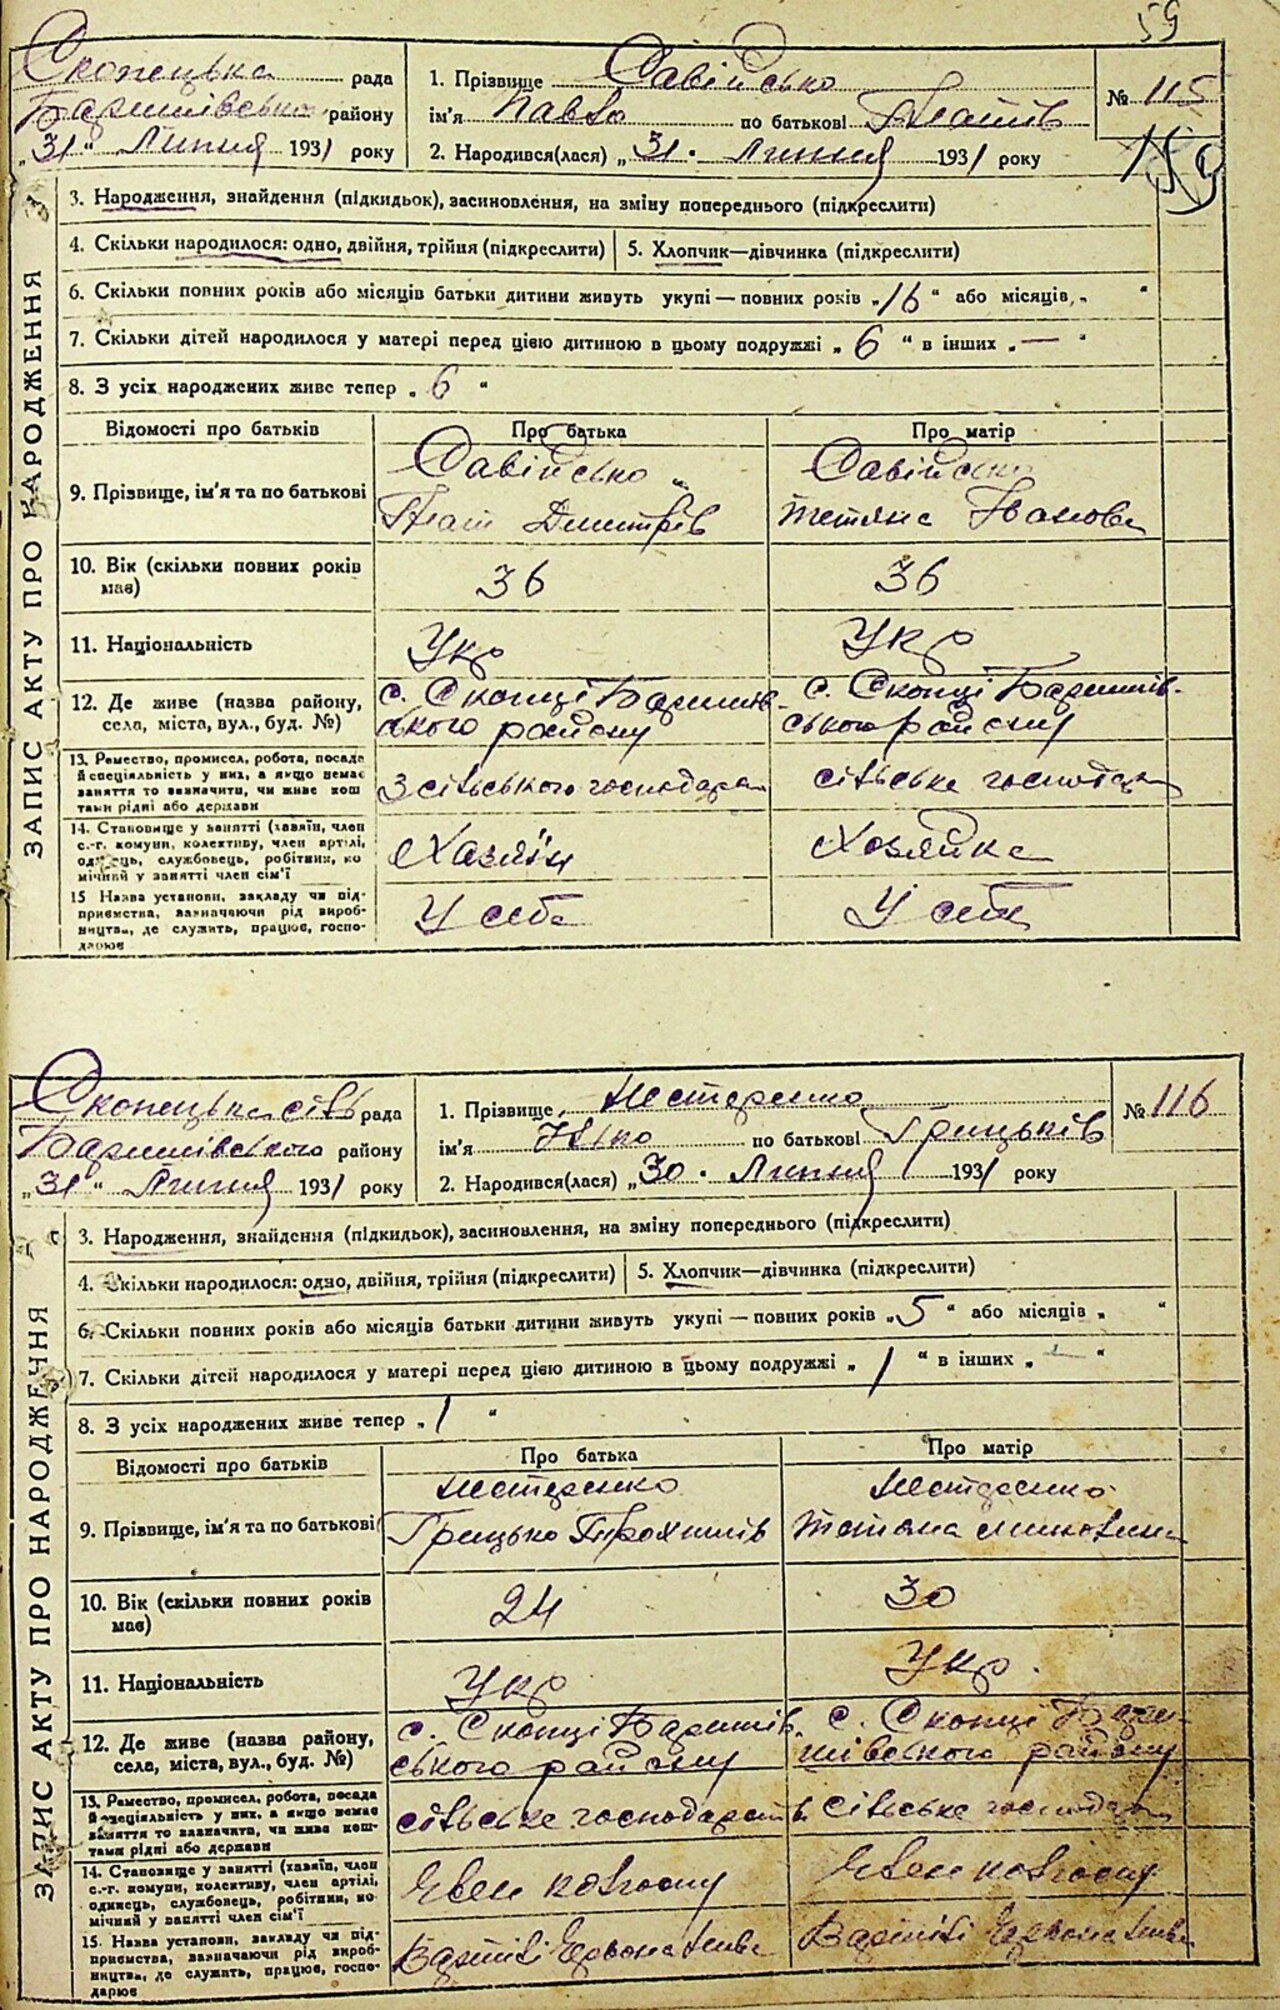 59
Скопецька рада
Баришівського району
„31“ Липня 1931 року
1. Прізвище Савійсько
ім'я Павло по батькові Гнатів
2. Народився(лася) „31. Липня 1931 року
№ 115
159
ЗАПИС АКТУ ПРО НАРОДЖЕННЯ
3. Народження, знайдення (підкидьок), засиновлення, на зміну попереднього (підкреслити)
4. Скільки народилося: одно, двійня, трійня (підкреслити)
5. Хлопчик—дівчинка (підкреслити)
6. Скільки повних років або місяців батьки дитини живуть укупі — повних років „16“ або місяців „ “
7. Скільки дітей народилося у матері перед цією дитиною в цьому подружжі „6“ в інших „—“
8. З усіх народжених живе тепер „6“
Відомості про батьків Про батька Про матір
9. Прізвище, ім'я та по батькові
Савійсько
Гнат Дмитрів
Савійсько
Тетяна Іванова
10. Вік (скільки повних років має) 36 36
11. Національність Укр Укр
12. Де живе (назва району, села, міста, вул., буд. №)
с. Скопці Баришів-
ського району
с. Скопці Баришів-
ського району
13. Ремество, промисел, робота, посада
й спеціяльність у них, а якщо немає
заняття то зазначити, чи живе кош
тами рідні або держави
З сільського господарств
сільське господар
14. Становище у занятті (хазяїн, член
с.-г. комуни, колективу, член артілі,
одинець, службовець, робітник, по
мічний у занятті член сім'ї
Хазяїн
Хозяйка
15 Назва установи, закладу чи під-
приємства, зазначаючи рід вироб-
ництва, де служить, працює, госпо-
дарює
У себе
У себе
Скопецька сіль рада
Баришівського району
„31“ Липня 1931 року
1. Прізвище Нестеренко
ім'я Ілько по батькові Грицьків
2. Народився(лася) „30. Липня 1931 року
№ 116
ЗАПИС АКТУ ПРО НАРОДЖЕННЯ
3. Народження, знайдення (підкидьок), засиновлення, на зміну попереднього (підкреслити)
4. Скільки народилося: одно, двійня, трійня (підкреслити)
5. Хлопчик—дівчинка (підкреслити)
6. Скільки повних років або місяців батьки дитини живуть укупі — повних років „5“ або місяців „ “
7. Скільки дітей народилося у матері перед цією дитиною в цьому подружжі „1“ в інших „—“
8. З усіх народжених живе тепер „1“
Відомості про батьків Про батька Про матір
9. Прізвище, ім'я та по батькові
Нестеренко
Грицько
Нестеренко
Тетяна
10. Вік (скільки повних років має) 24 30
11. Національність Укр Укр.
12. Де живе (назва району, села, міста, вул., буд. №)
с. Скопці Баришів.
ського району
с. Скопці Бари-
шівського району
13. Ремество, промисел, робота, посада
й спеціяльність у них, а якщо немає
заняття то зазначити, чи живе кош-
тами рідні або держави
сільське господарств
сільське господар
14. Становище у занятті (хазяїн, член
с.-г. комуни, колективу, член артілі,
одинець, службовець, робітник, по
мічний у занятті член сім'ї
Член колгоспу
Член колгоспу
15. Назва установи, закладу чи під-
приємства, зазначаючи рід вироб-
ництва, де служить, працює, госпо-
дарює
В артілі Червона
В артілі Червона